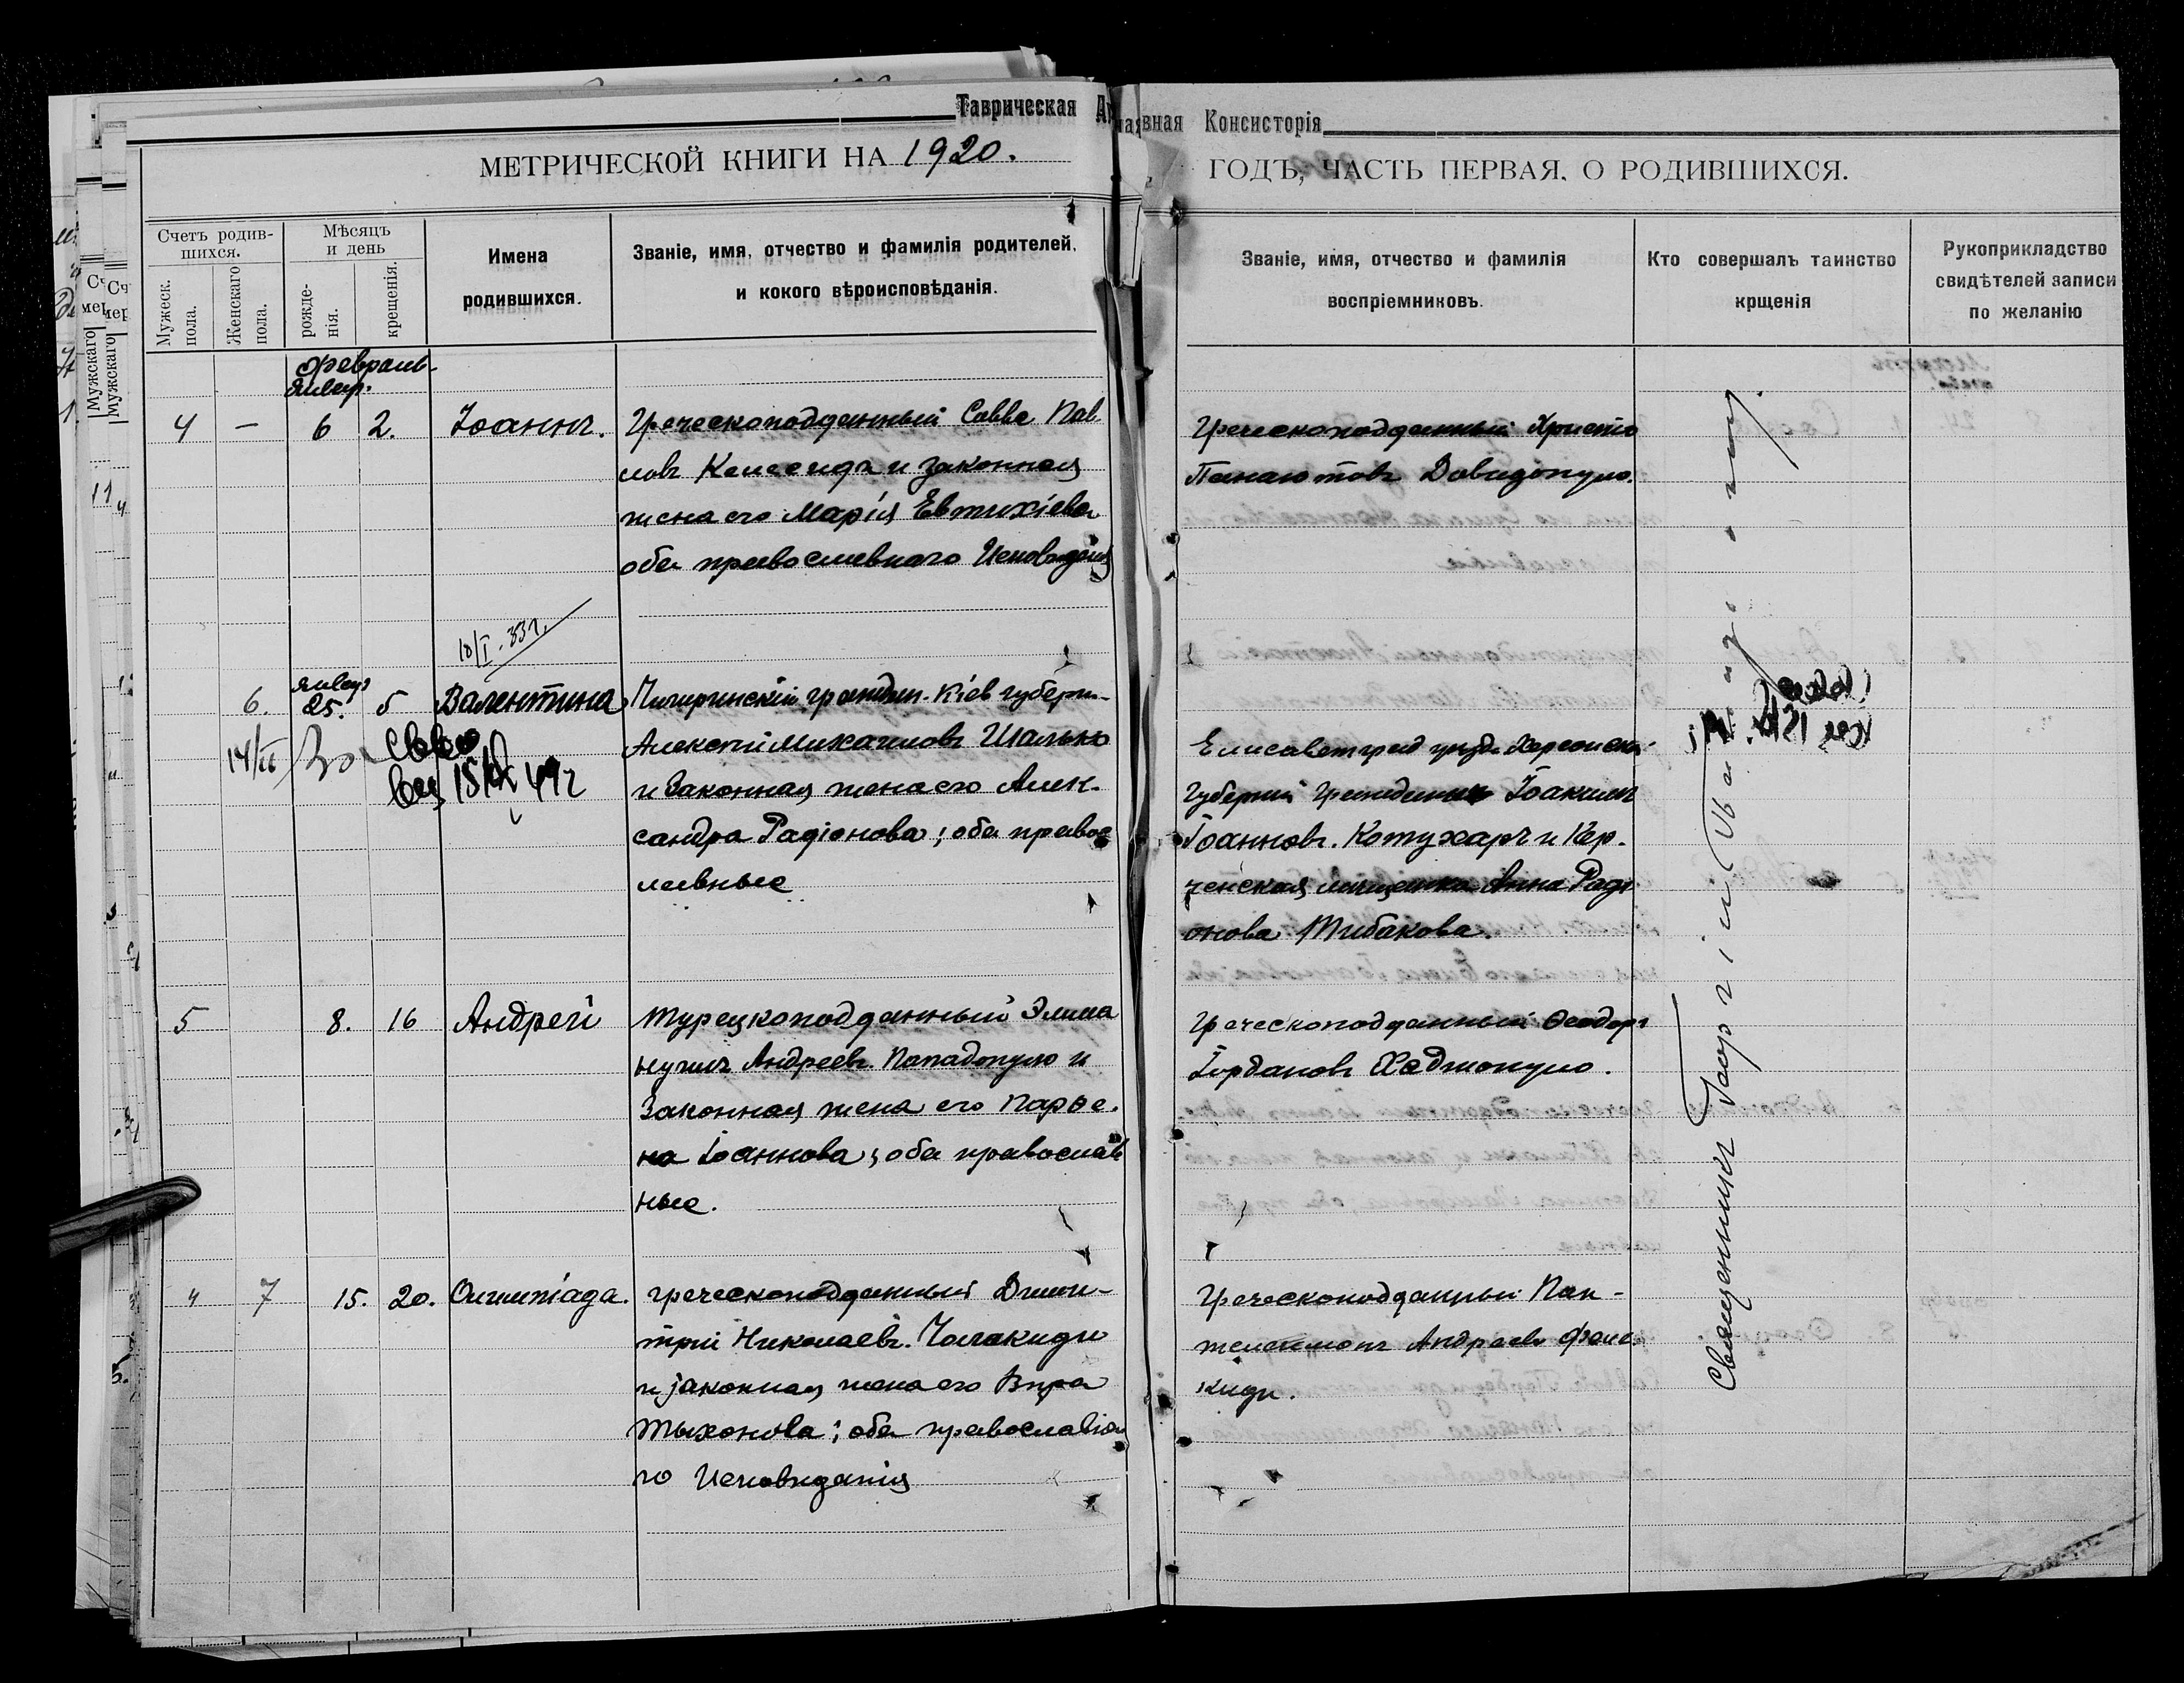 Таврическая
вная Консисторія
МЕТРИЧЕСКОЙ КНИГИ НА 1920.
ГОДЪ, ЧАСТЬ ПЕРВАЯ, О РОДИВШИХСЯ.
Счетъ родив-
шихся.
Мужеск.
пола.
Женскаго
пола.
Мѣсяцъ
и день
рожде-
нія.
крещенія.
Имена
родившихся.
Званіе, имя, отчество и фамилія родителей,
и кокого вѣроисповѣданія.
Званіе, имя, отчество и фамилія
воспріемниковъ.
Кто совершалъ таинство
крщенія
Рукоприкладство
свидѣтелей записи
по желанію
Мужскаго
Мужскаго
Февраль
Январ.
4 — 6 2. Іоаннъ.
Греческоподданный Савва Пав
ловъ и законная
жена его Марія Евтихіева
оба православнаго Исповѣданія
Греческоподданный Христо
Панаіотовъ Давидопуло.
18/I-33г.
6. Январ 25. 5 Валентина
Чигиринскій граждан. Кіев губерн-
Алексѣй Михаиловъ Шалько
и Законная жена его Алек-
сандра Радіонова; оба правос
лавные
Елисаветград уѣзда Херсонской
Губерніи Гражданинъ Іоакимъ
Іоанновъ. Котухаръ и Кер-
ченская мѣщанка Анна Раді
онова Тибакова.
14/II
15/IX 49г
5 8. 16 Андрей
Турецкоподданный
Андреевъ Пападопуло и
Законная жена его Парѳе-
на Іоаннова; оба православ
ные.
Греческоподданный Ѳеодоръ
Іордановъ Хаджопуло.
4 7 15. 20. Олимпіада.
греческоподданный Дими-
трій Николаевъ. Чалакиди
и законная жена его Вѣра
Тыхонова; оба православна
го Исповѣданія
Греческоподданный Пан-
телеимонъ Андреевъ
киди.
Священникъ Георгій